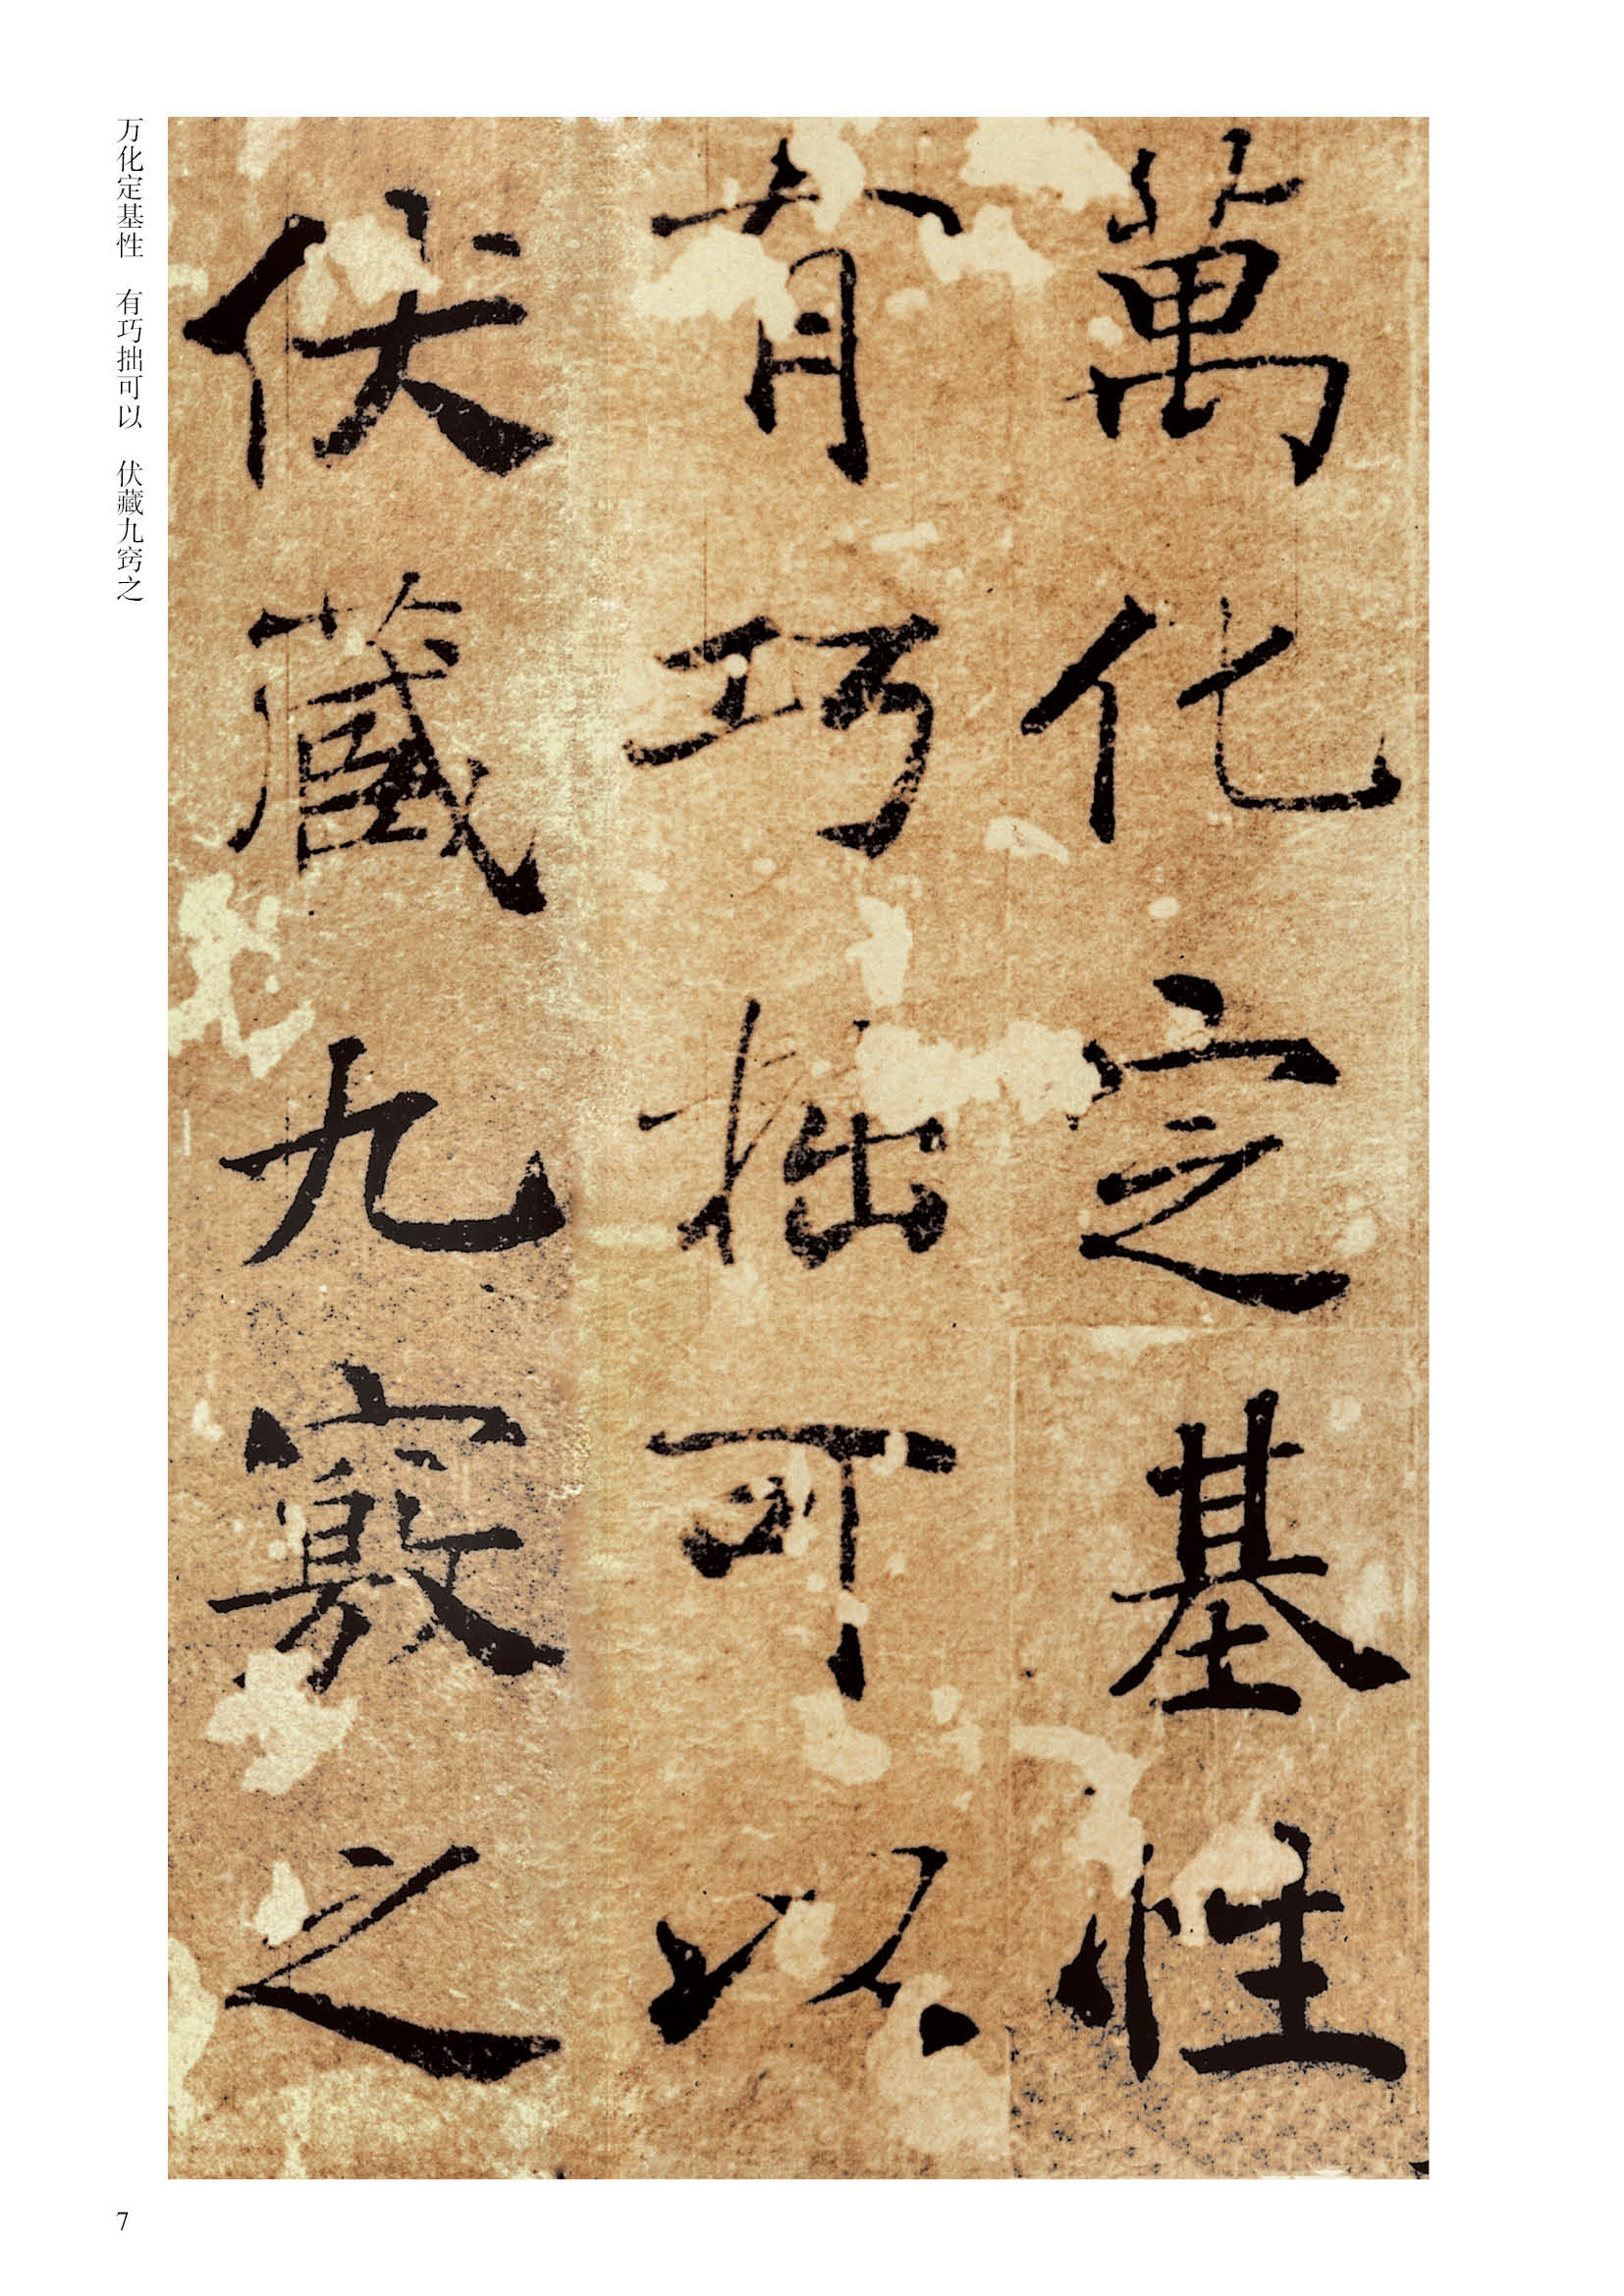 萬化定基性
有巧拙可以
伏藏九竅之
万化定基性　有巧拙可以　伏藏九窍之
7